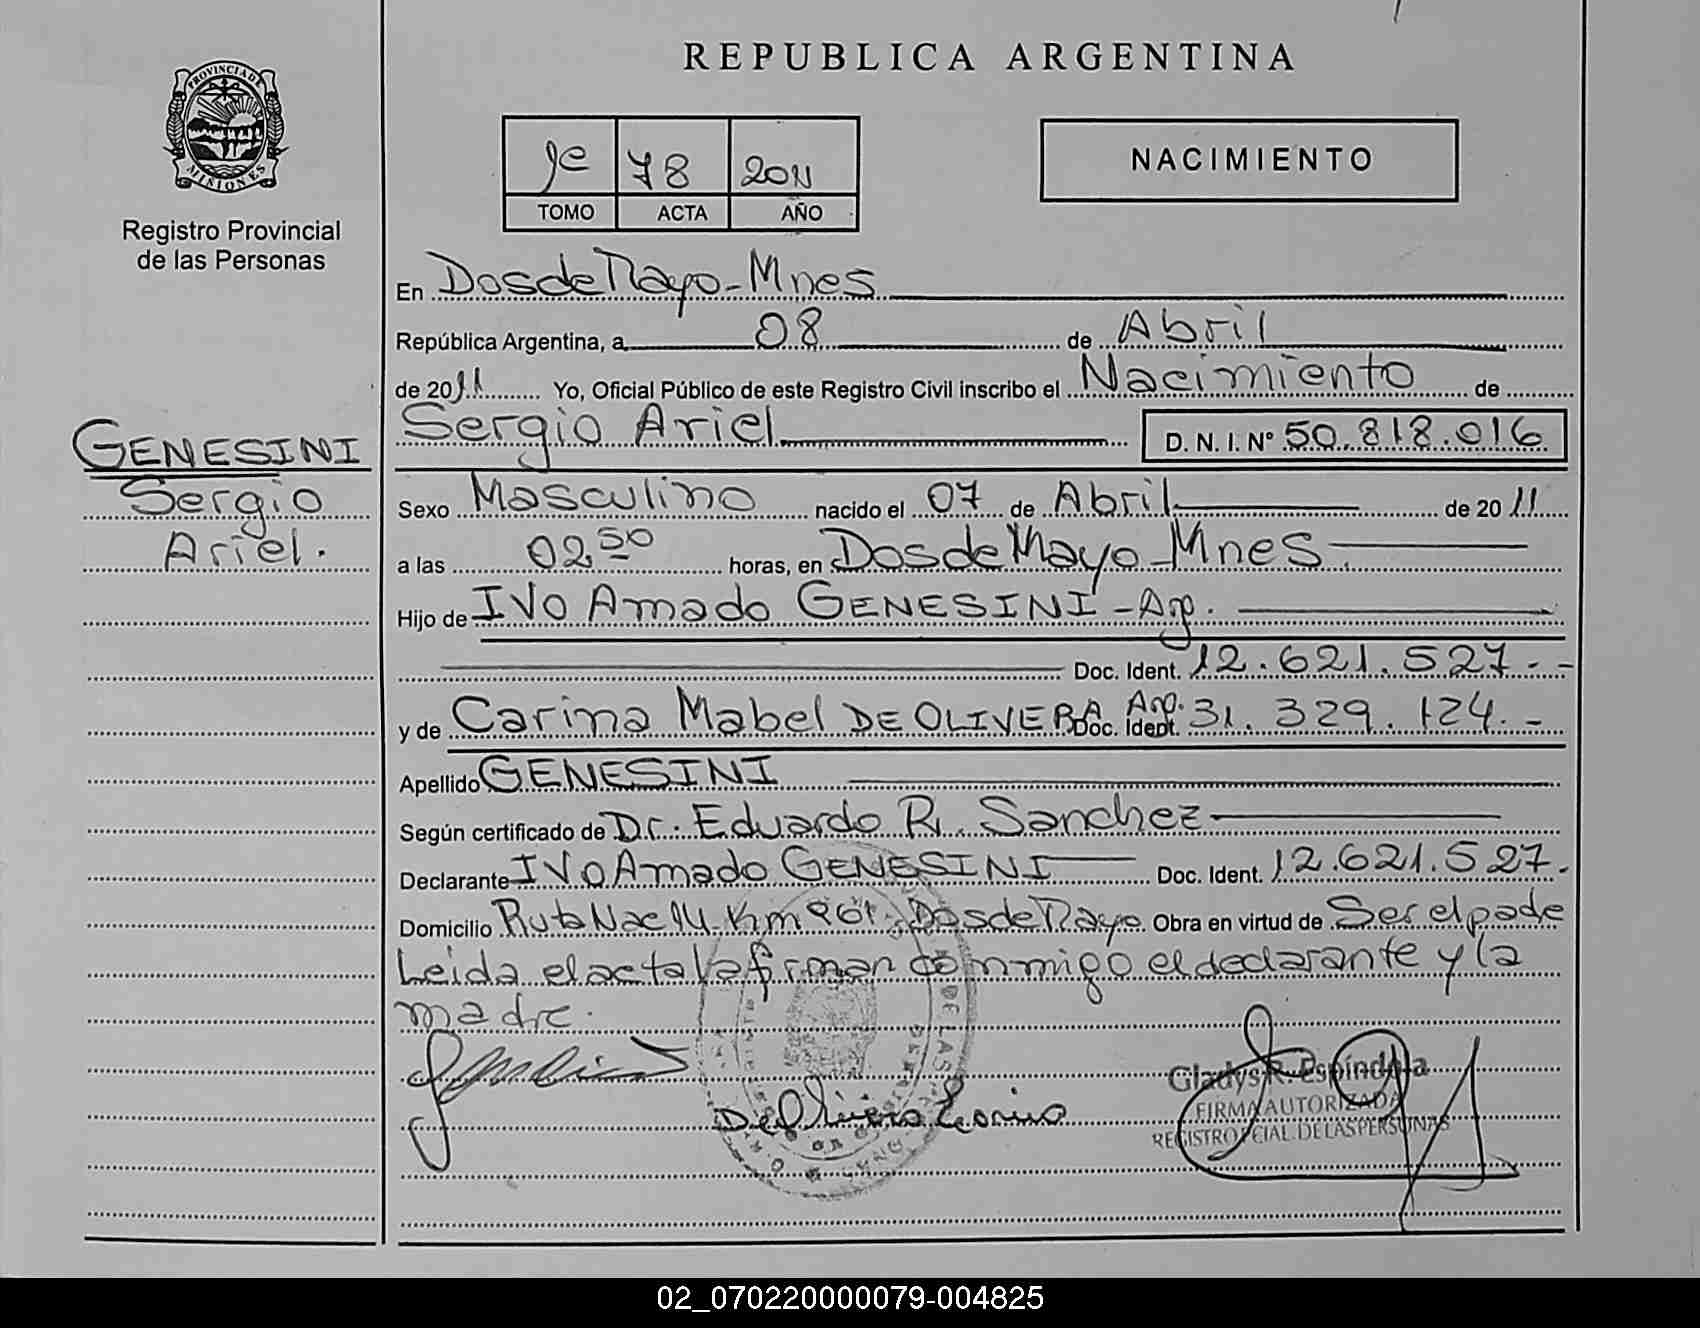 REPUBLICA ARGENTINA
PROVINCIA DE
MISIONES
Registro Provincial
de las Personas
1º 78 2011
TOMO ACTA AÑO
NACIMIENTO
GENESINI
Sergio
Ariel.
En Dos de Mayo - Mnes
República Argentina, a 08 de Abril
de 2011 Yo, Oficial Público de este Registro Civil inscribo el Nacimiento de
Sergio Ariel D. N. I. Nº 50.818.016
Sexo Masculino nacido el 07 de Abril de 2011
a las 02.50 horas, en Dos de Mayo - Mnes.
Hijo de Ivo Amado GENESINI - Arg.
Doc. Ident. 12.621.527.-
y de Carina Mabel DE OLIVERA Arg. Doc. Ident. 31.329.124.-
Apellido GENESINI
Según certificado de Dr. Eduardo R. Sanchez
Declarante Ivo Amado GENESINI Doc. Ident. 12.621.527.
Domicilio Ruta Nac 14 Km 961 - Dos de Mayo. Obra en virtud de Ser el padre
Leida el acta la firman conmigo el declarante y la
madre.
De Olivera Carina
Gladys R. Espíndola
FIRMA AUTORIZADA
REGISTRO PCIAL. DE LAS PERSONAS
02_070220000079-004825